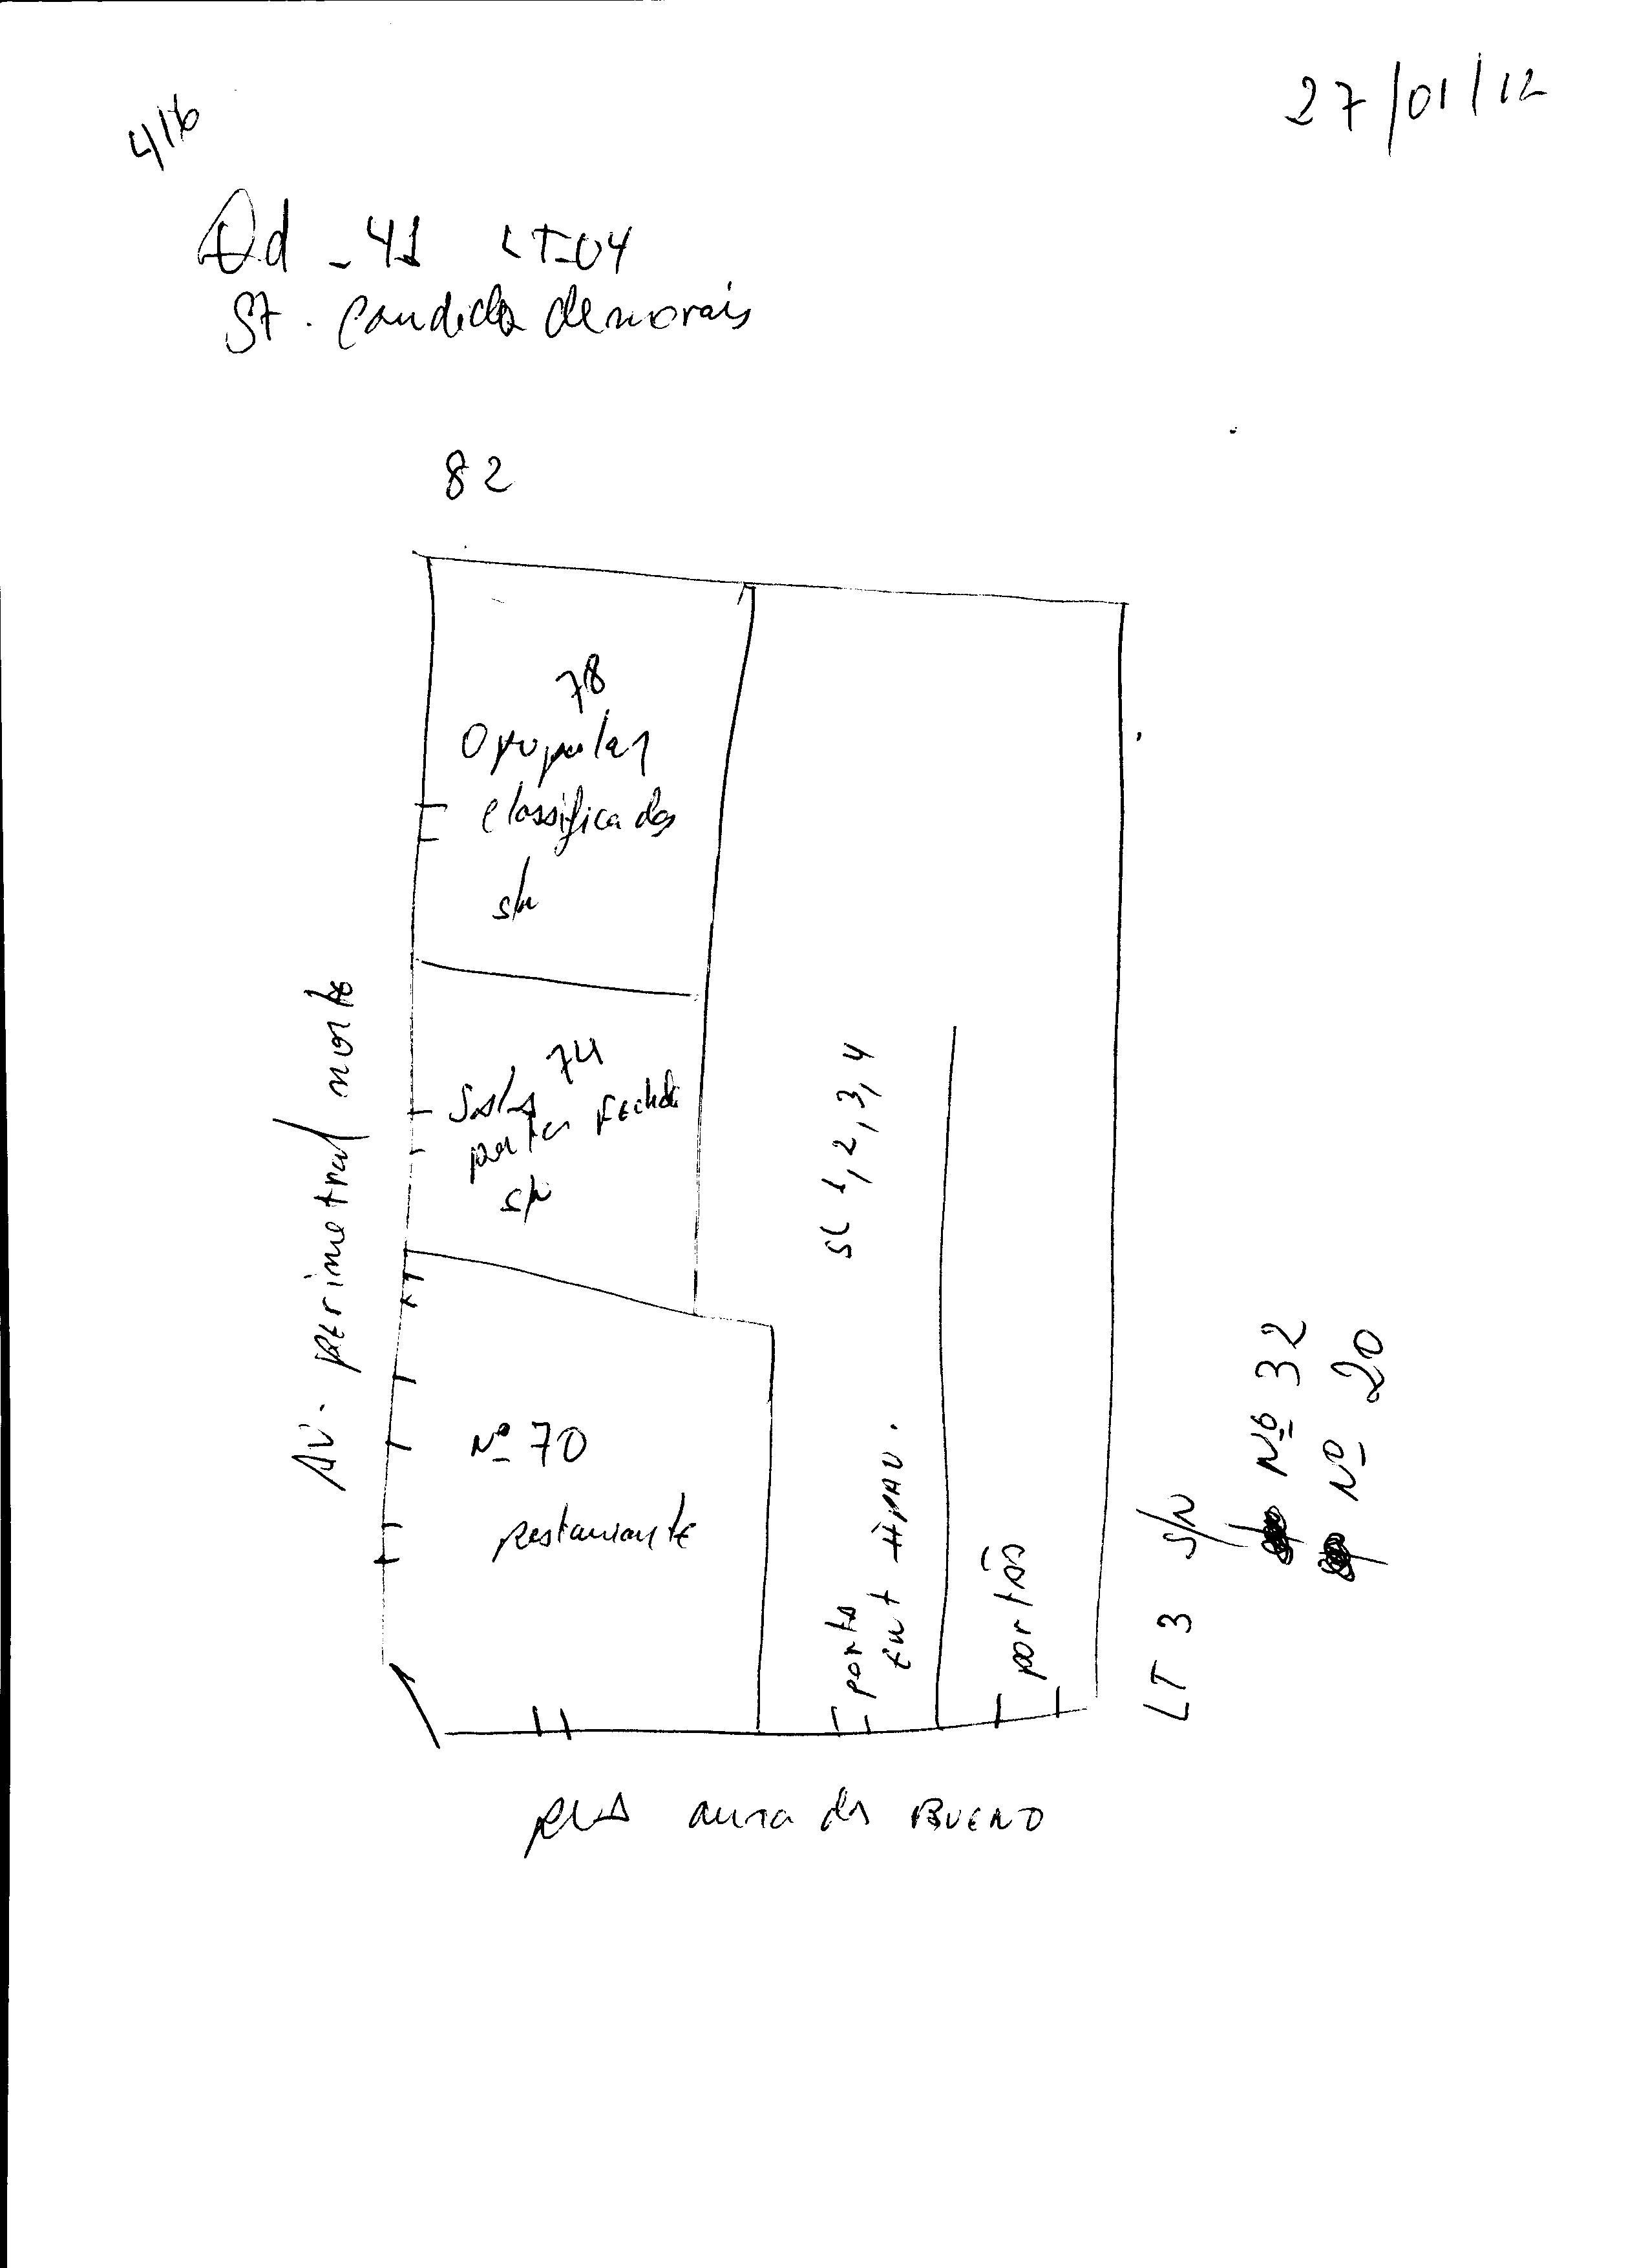 27/01/12
416
Qd - 41 LT-04
St. Candida de morais
82
78
O popular
classificados
s/n
74
Salas
porta fechada
s/n
Av. perimetral norte
Nº 70
restaurante
SL 1, 2, 3, 4
porta
ent
portão
LT 3 S/N
Nº 32
Nº 20
RUA aurea da BUENO